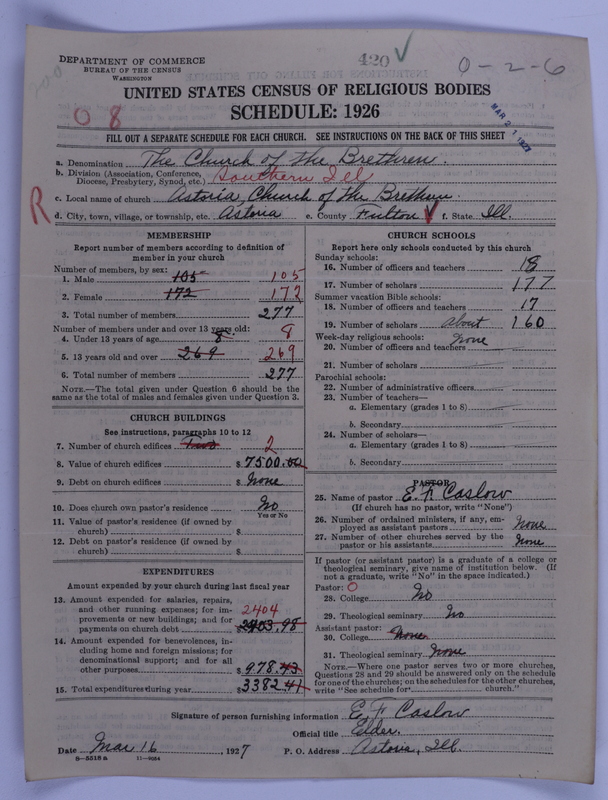 DEPARTMENT OF COMMERCE
BUREAU OF THE CENSUS
WASHINGTON
420 ✓
0-2-6
UNITED STATES CENSUS OF RELIGIOUS BODIES
SCHEDULE: 1926
MAR 21 1927
0 8
FILL OUT A SEPARATE SCHEDULE FOR EACH CHURCH. SEE INSTRUCTIONS ON THE BACK OF THIS SHEET
a. Denomination The Church of the Brethren.
b. Division (Association, Conference, Diocese, Presbytery, Synod, etc.) Southern Ill
c. Local name of church Astoria Church of the Brethren.
R
d. City, town, village, or township, etc. Astoria e. County Fulton ✓ f. State Ill.
MEMBERSHIP
Report number of members according to definition of
member in your church
Number of members, by sex:
1. Male 105 105
2. Female 172 172
3. Total number of members 277
Number of members under and over 13 years old:
4. Under 13 years of age 8 8
5. 13 years old and over 269 269
6. Total number of members 277
NOTE.—The total given under Question 6 should be
the same as the total of males and females given under Question 3.
CHURCH BUILDINGS
See instructions, paragraphs 10 to 12
7. Number of church edifices Two 2
8. Value of church edifices $ 7500.00
9. Debt on church edifices $ None
10. Does church own pastor's residence No
Yes or No
11. Value of pastor's residence (if owned by
church) $
12. Debt on pastor's residence (if owned by
church) $
EXPENDITURES
Amount expended by your church during last fiscal year
13. Amount expended for salaries, repairs,
and other running expenses; for im-
provements or new buildings; and for
payments on church debt 2404 $ 2403.98
14. Amount expended for benevolences, in-
cluding home and foreign missions; for
denominational support; and for all
other purposes $ 978.43
15. Total expenditures during year $ 3382.41
CHURCH SCHOOLS
Report here only schools conducted by this church
Sunday schools:
16. Number of officers and teachers 18
17. Number of scholars 177
Summer vacation Bible schools:
18. Number of officers and teachers 17
19. Number of scholars About 160
Week-day religious schools: None
20. Number of officers and teachers
21. Number of scholars
Parochial schools:
22. Number of administrative officers
23. Number of teachers—
a. Elementary (grades 1 to 8)
b. Secondary
24. Number of scholars—
a. Elementary (grades 1 to 8)
b. Secondary
PASTOR
25. Name of pastor E. F. Caslow
(If church has no pastor, write "None")
26. Number of ordained ministers, if any, em-
ployed as assistant pastors None
27. Number of other churches served by the
pastor or his assistants None
If pastor (or assistant pastor) is a graduate of a college or
theological seminary, give name of institution below. (If
not a graduate, write "No" in the space indicated.)
Pastor: 0
28. College No
29. Theological seminary No
Assistant pastor:
30. College None
31. Theological seminary None
NOTE.—Where one pastor serves two or more churches,
Questions 28 and 29 should be answered only on the schedule
for one of the churches; on the schedules for the other churches,
write "See schedule for church."
Signature of person furnishing information E. F. Caslow
Official title Elder.
Date Mar 16, 1927 P. O. Address Astoria, Ill.
8-5518 a 11-9054